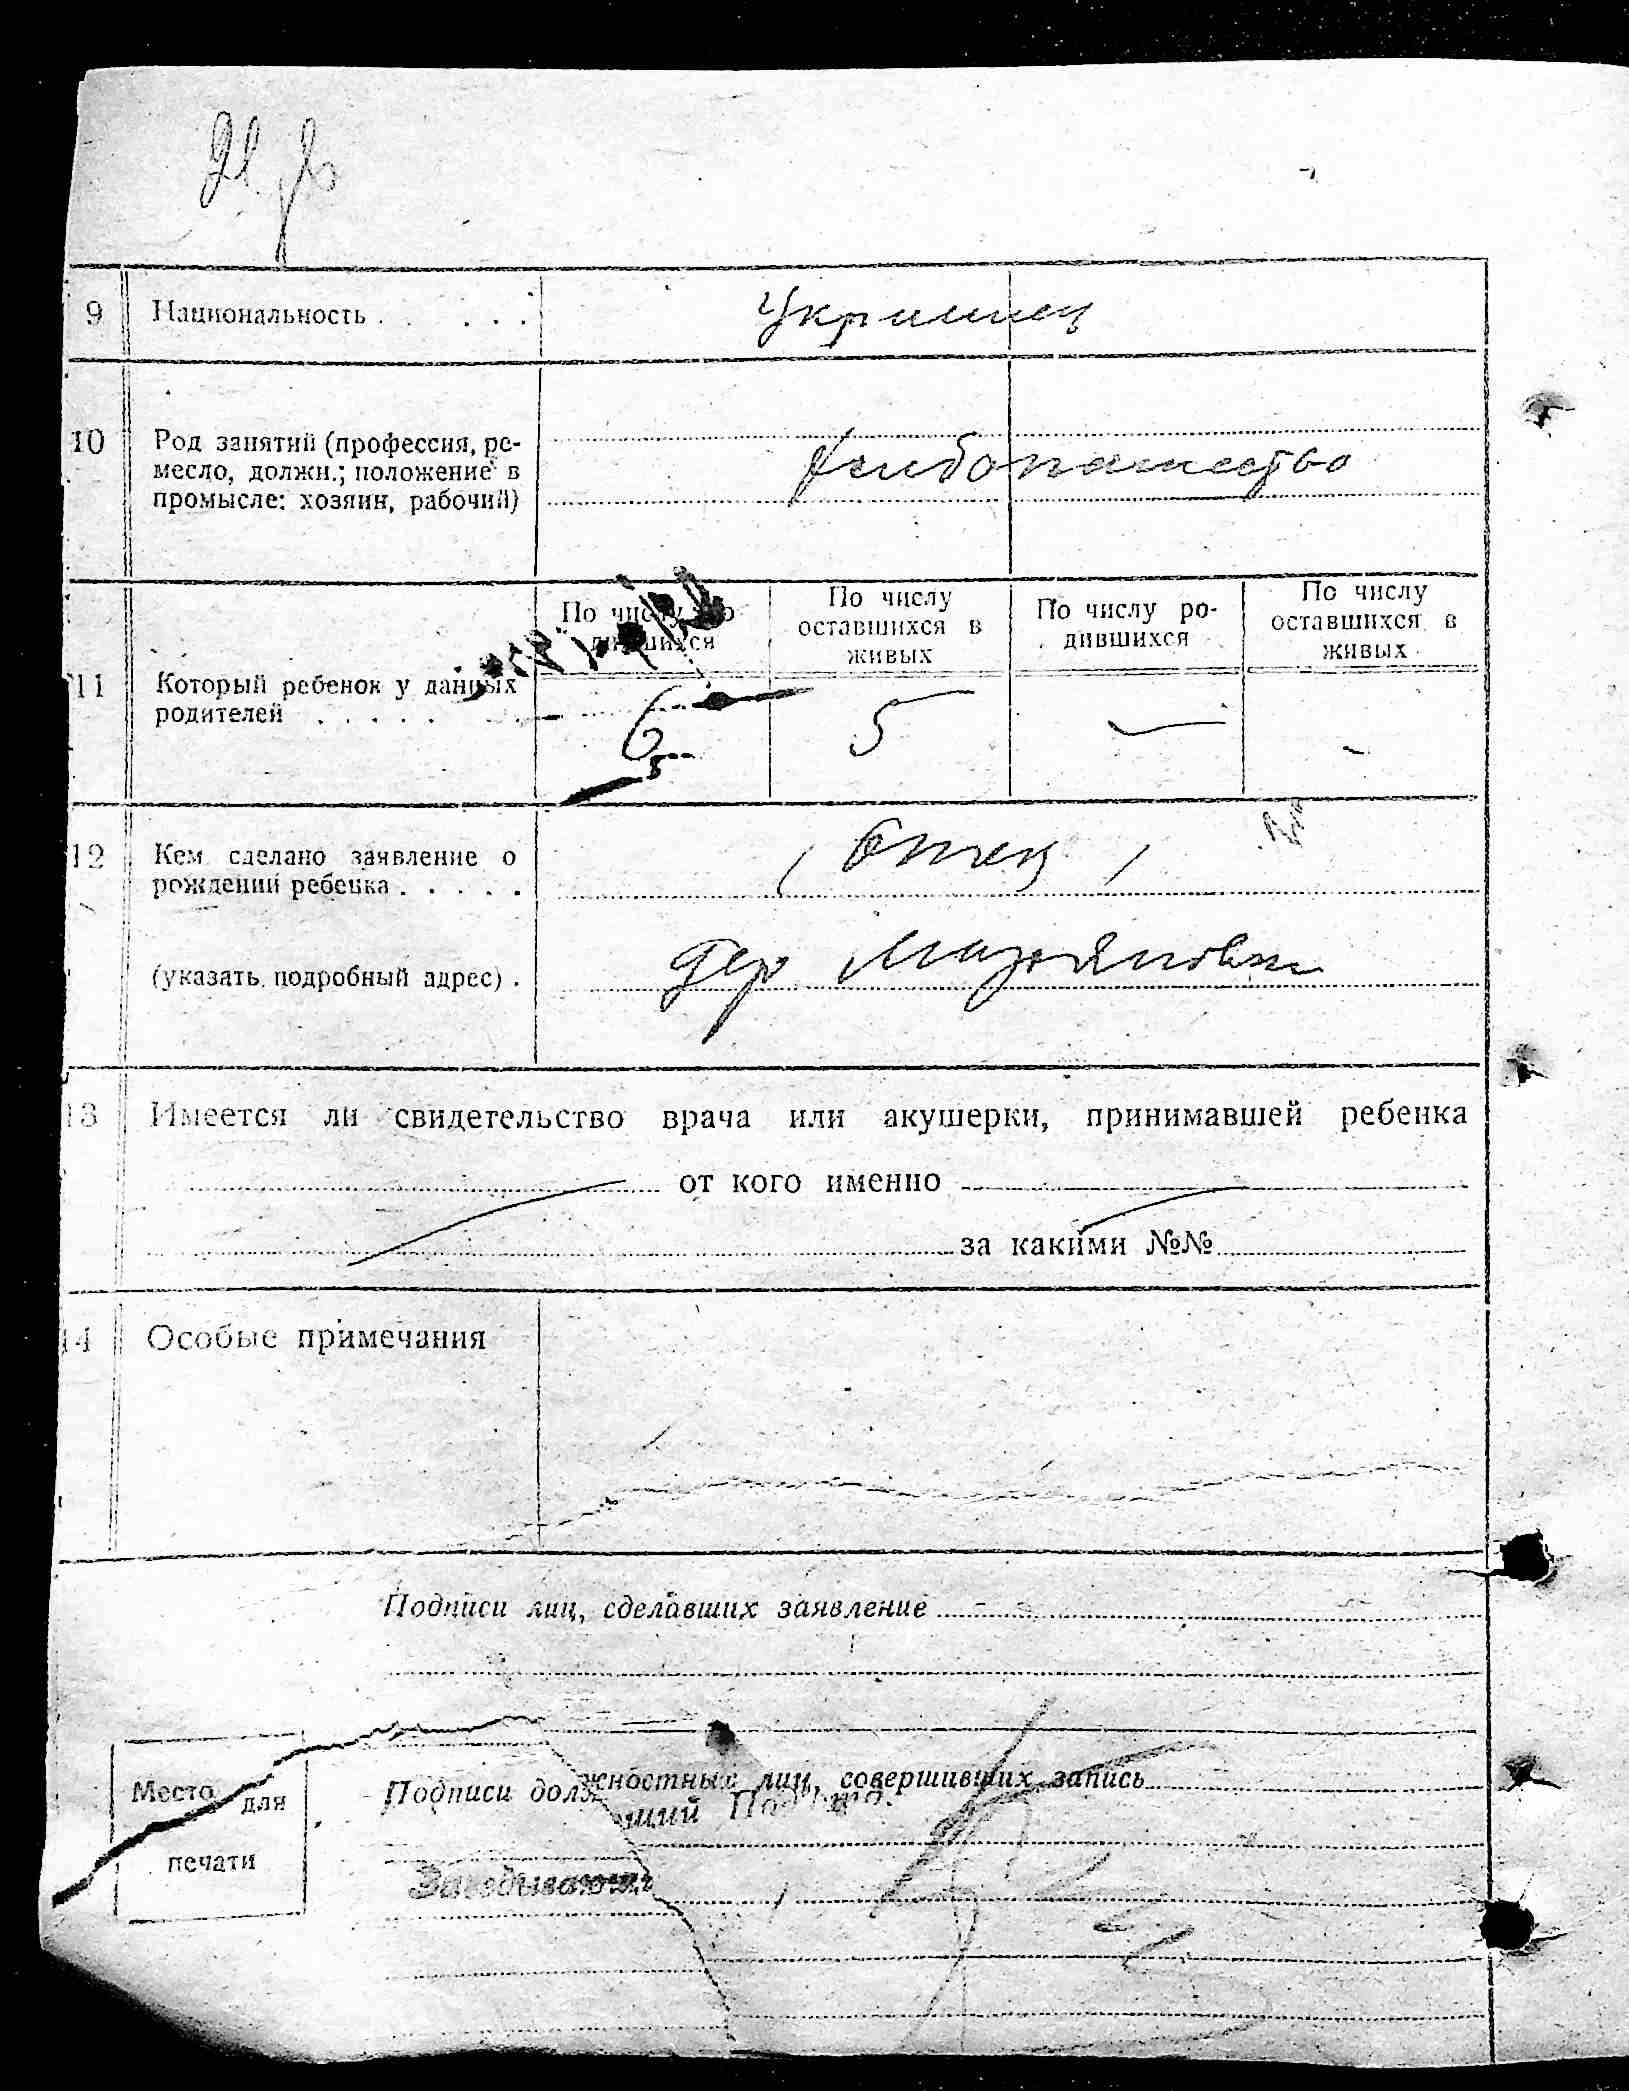 9 Национальность . . . . . Украинец
10 Род занятий (профессия, ре-
месло, должн.; положение в
промысле: хозяин, рабочий)
Хлебопашество
По числу ро-
дившихся
По числу
оставшихся в
живых
По числу ро-
дившихся
По числу
оставшихся в
живых
11 Который ребенок у данных
родителей . . . . .
6 5 — -
12 Кем сделано заявление о
рождении ребенка . . . . .
( Отец )
(указать подробный адрес) . дер
13 Имеется ли свидетельство врача или акушерки, принимавшей ребенка
от кого именно
за какими №№
14 Особые примечания
Подписи лиц, сделавших заявление
Место для
печати
Подписи должностных лиц, совершивших запись